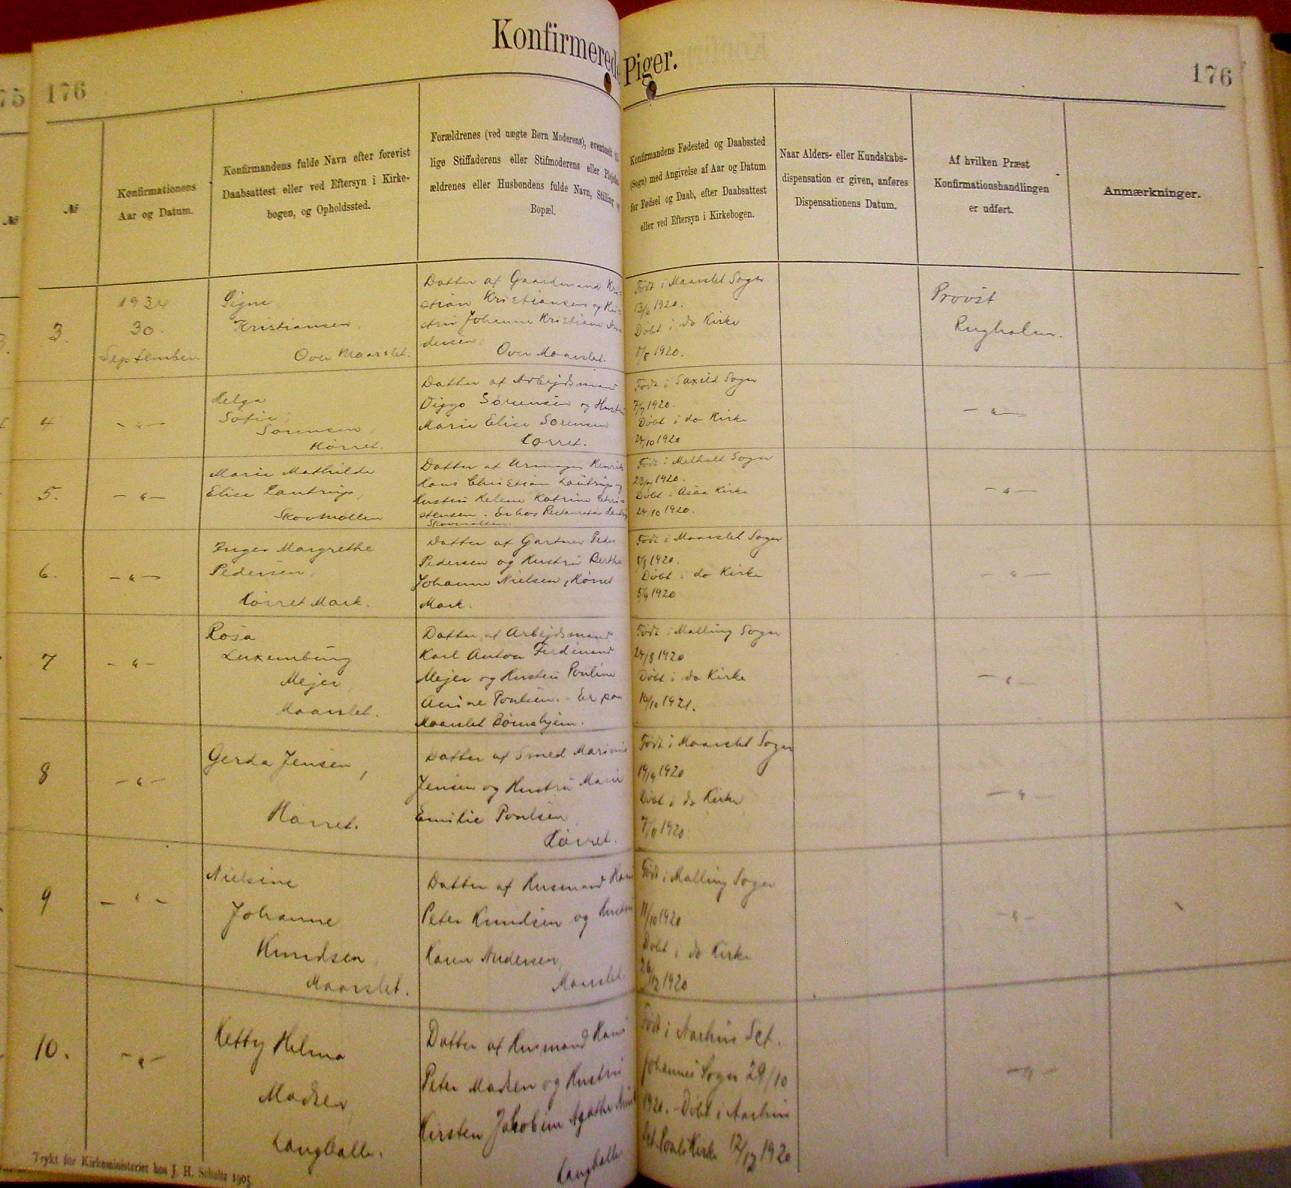 Konfirmerede Piger.
176
176
75
№
Konfirmationens
Aar og Datum.
Konfirmandens fulde Navn efter forevist
Daabsattest eller ved Eftersyn i Kirke-
bogen, og Opholdssted.
Forældrenes (ved uægte Børn Moderens),
lige Stiffaderens eller Stifmoderens eller
ældrenes eller Husbondens fulde Navn, Stilling
Bopæl.
Konfirmandens Fødested og Daabssted
(Sogn) med Angivelse af Aar og Datum
for Fødsel og Daab, efter Daabsattest
eller ved Eftersyn i Kirkebogen.
Naar Alders- eller Kundskabs-
dispensation er given, anføres
Dispensationens Datum.
Af hvilken Præst
Konfirmationshandlingen
er udført.
Anmærkninger.
3.
1934
30.
September
Signe
Kristiansen,
Over Maarslet.
Datter af Gaardmand Kri-
stian Kristiansen og
Johanne Kristiane An-
dersen,
Over Maarslet.
Født i Maarslet Sogn
1920.
Døbt i do Kirke
1920.
Provst
Rugholm.
4
- " -
Helga
Sofie
Sørensen,
Hørret.
Datter af Arbejdsmand
Viggo Sørensen og Hustru
Marie Elise Sørensen
Hørret.
Født i Saxild Sogn
1920.
Døbt i do Kirke
24/10 1920
- " -
5.
- " -
Marie Mathilde
Elise Lautrup,
Skovmøllen
Datter af Henrik
Hans Christian Lautrup og
Hustru Helene Katrine Chri-
stensen.
Skovmøllen.
Født i Melholt Sogn
1920.
Døbt i Asaa Kirke
24/10 1920.
- " -
6.
- " -
Inger Margrethe
Pedersen,
Hørret Mark.
Datter af Gartner Peder
Pedersen og Hustru Bertha
Johanne Nielsen, Hørret
Mark.
Født i Maarslet Sogn
1920.
Døbt i do Kirke
1920
- " -
7
- " -
Rosa
Luxemburg
Mejer,
Maarslet.
Datter af Arbejdsmand
Karl Anton Ferdinand
Mejer og Hustru Pouline
Anine Poulsen. - Er paa
Maarslet Børnehjem.
Født i Malling Sogn
24/8 1920
Døbt i do Kirke
16/10 1921.
- " -
8
- " -
Gerda Jensen,
Hørret.
Datter af Smed Marinus
Jensen og Hustru Marie
Emilie Poulsen
Hørret.
Født i Maarslet Sogn
19/4 1920
Døbt i do Kirke
1920.
- " -
9
- " -
Nielsine
Johanne
Knudsen,
Maarslet.
Datter af Husmand Hans
Peter Knudsen og Hustru
Karen Andersen,
Maarslet
Født i Malling Sogn
11/10 1920
Døbt i do Kirke
26/12 1920
- " -
10.
- " -
Ketty Helma
Madsen
Langballe.
Datter af Husmand Hans
Peter Madsen og Hustru
Kirsten Jakobine Agathe
Langballe.
Født i Aarhus Sct.
Johannes Sogn 29/10
1920. - Døbt i Aarhus
Sct. Pouls Kirke 12/12 1920
- " -
Trykt for Kirkeministeriet hos J. H. Schultz 1905